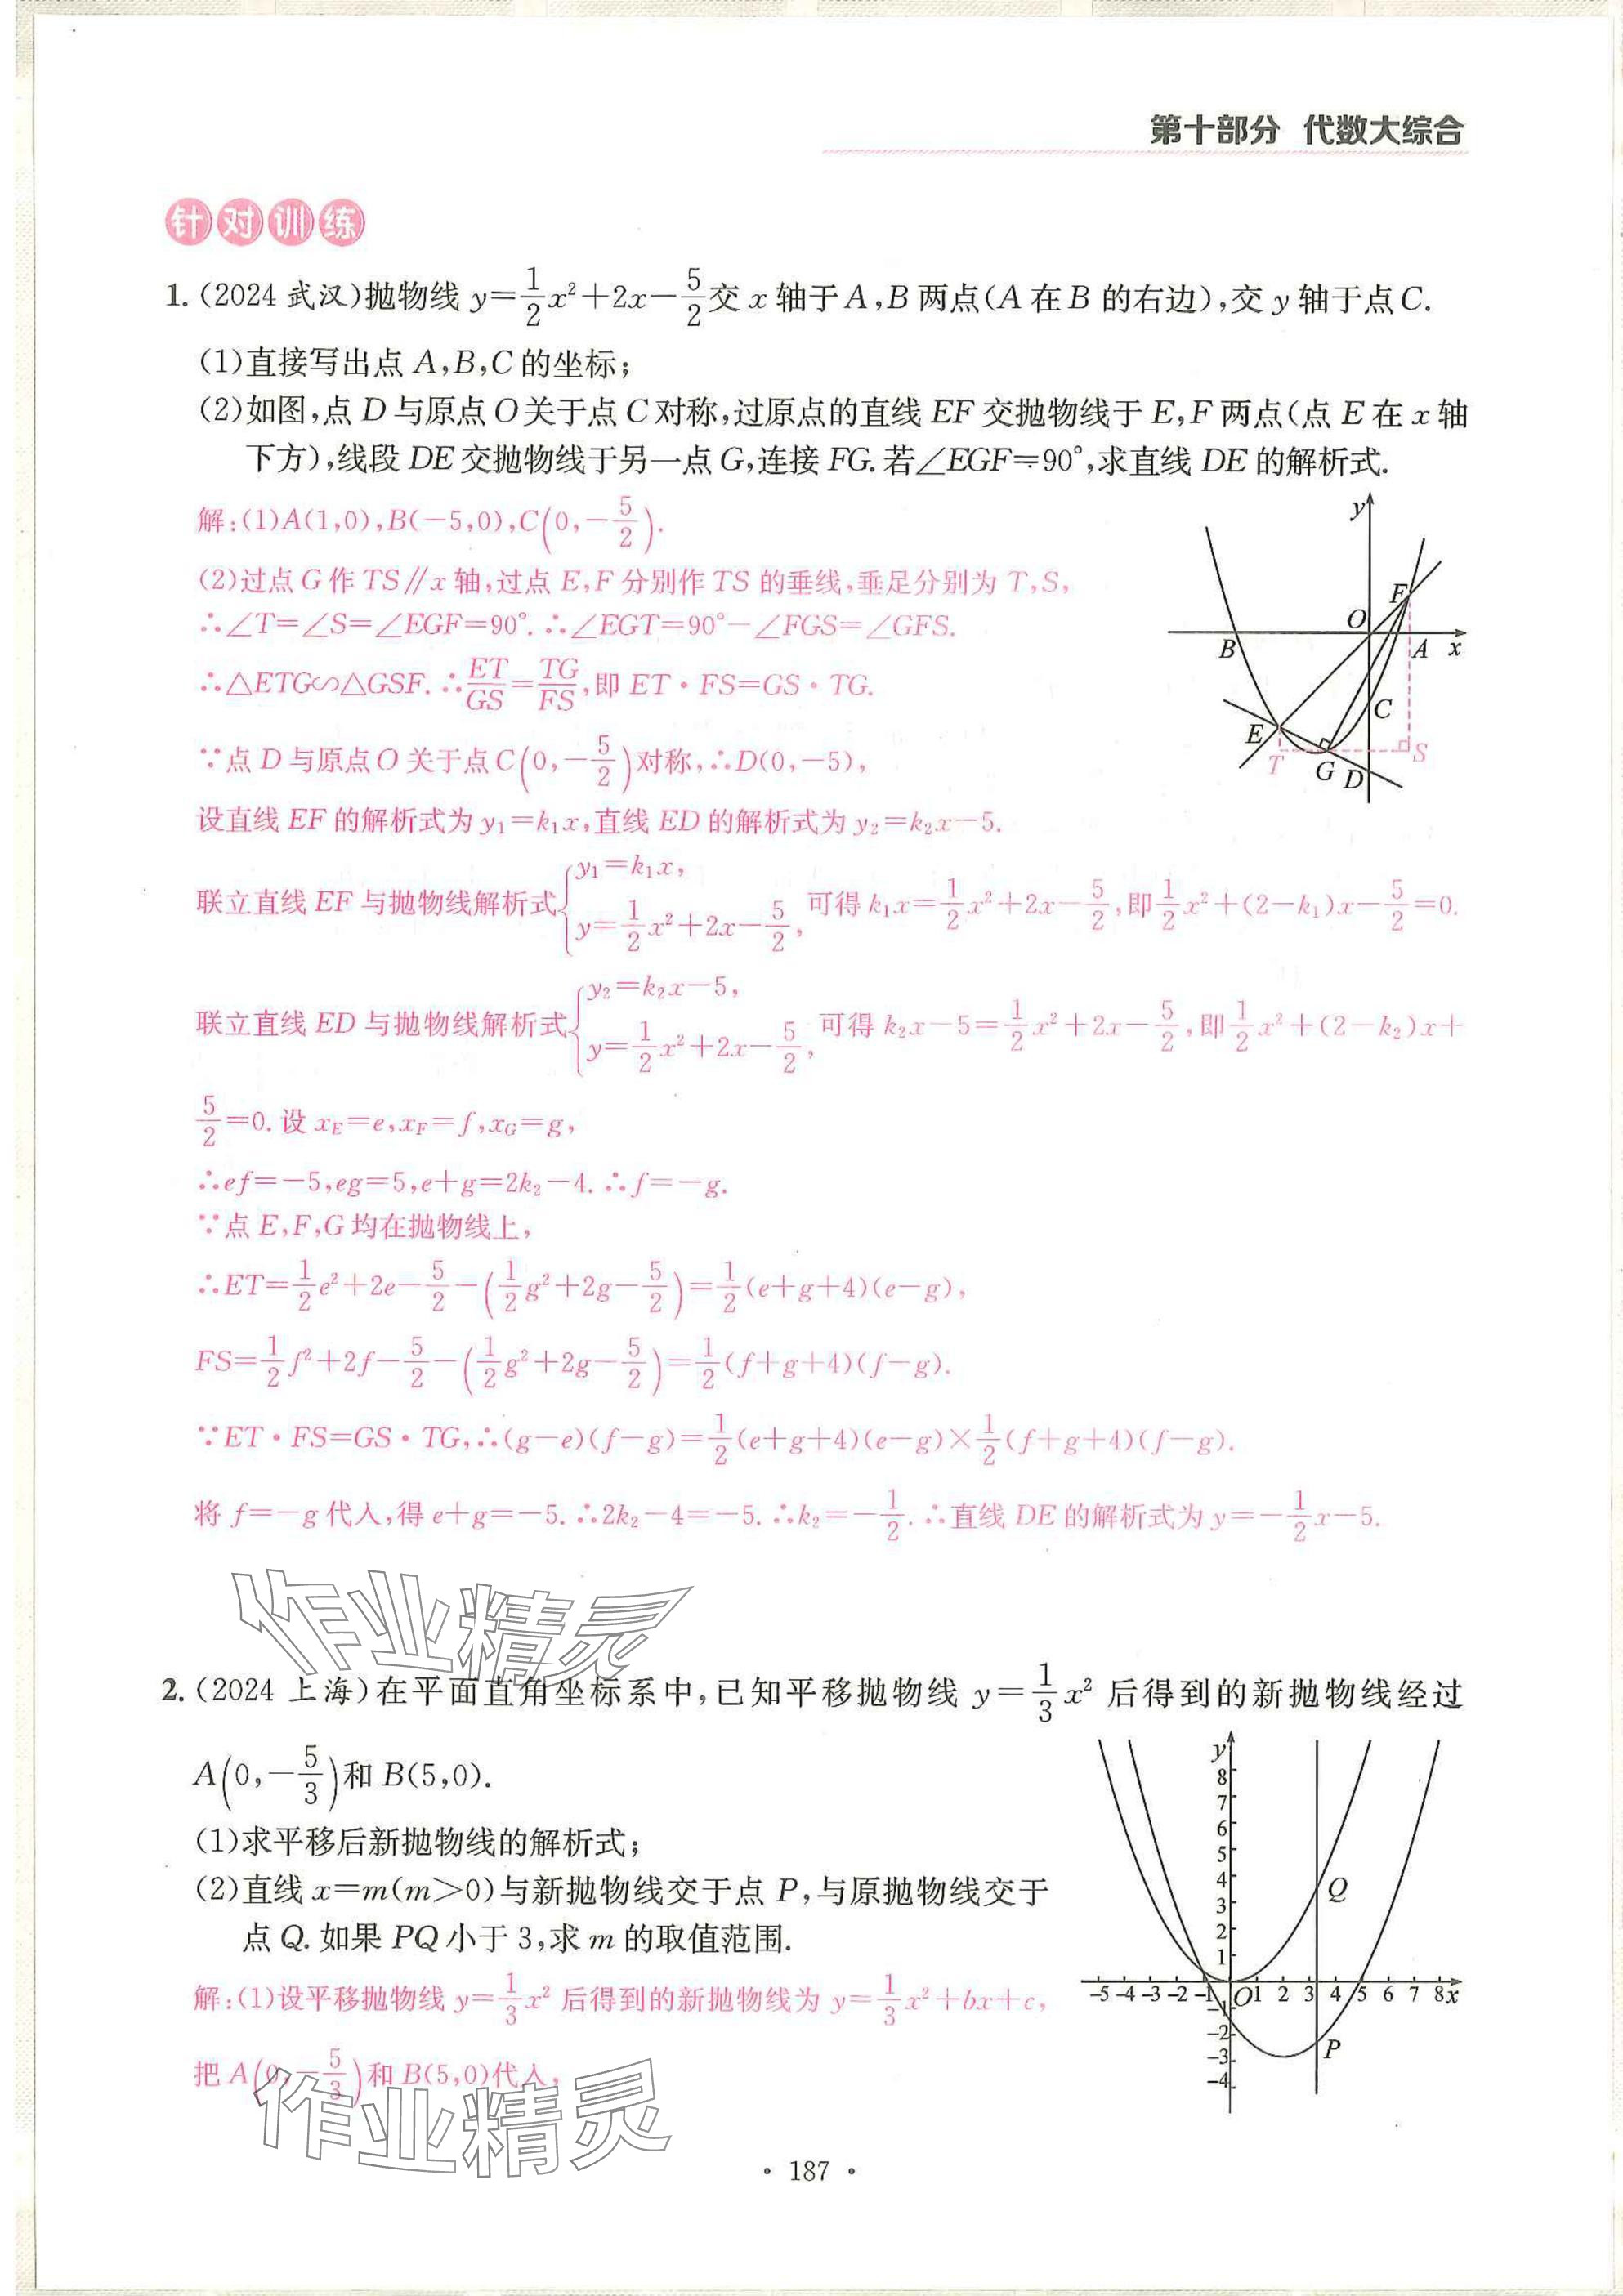 第十部分 代数大综合
针对训练
1. (2024 武汉)抛物线 y=1/2x²+2x-5/2交 x 轴于 A,B 两点(A 在 B 的右边),交 y 轴于点 C.
(1)直接写出点 A,B,C 的坐标;
(2)如图,点 D 与原点 O 关于点 C 对称,过原点的直线 EF 交抛物线于 E,F 两点(点 E 在 x 轴
下方),线段 DE 交抛物线于另一点 G,连接 FG. 若∠EGF=90°,求直线 DE 的解析式.
解:(1)A(1,0),B(-5,0),C(0,-5/2).
(2)过点 G 作 TS∥x 轴,过点 E,F 分别作 TS 的垂线,垂足分别为 T,S,
∴∠T=∠S=∠EGF=90°. ∴∠EGT=90°-∠FGS=∠GFS.
∴△ETG∽△GSF. ∴ET/GS=TG/FS,即 ET·FS=GS·TG.
∵点 D 与原点 O 关于点 C(0,-5/2)对称,∴D(0,-5),
设直线 EF 的解析式为 y₁=k₁x,直线 ED 的解析式为 y₂=k₂x-5.
联立直线 EF 与抛物线解析式{y₁=k₁x, y=1/2x²+2x-5/2, 可得 k₁x=1/2x²+2x-5/2,即1/2x²+(2-k₁)x-5/2=0.
联立直线 ED 与抛物线解析式{y₂=k₂x-5, y=1/2x²+2x-5/2, 可得 k₂x-5=1/2x²+2x-5/2,即1/2x²+(2-k₂)x+
5/2=0. 设 x_E=e,x_F=f,x_G=g,
∴ef=-5,eg=5,e+g=2k₂-4. ∴f=-g.
∵点 E,F,G 均在抛物线上,
∴ET=1/2e²+2e-5/2-(1/2g²+2g-5/2)=1/2(e+g+4)(e-g),
FS=1/2f²+2f-5/2-(1/2g²+2g-5/2)=1/2(f+g+4)(f-g).
∵ET·FS=GS·TG,∴(g-e)(f-g)=1/2(e+g+4)(e-g)×1/2(f+g+4)(f-g).
将 f=-g 代入,得 e+g=-5. ∴2k₂-4=-5. ∴k₂=-1/2. ∴直线 DE 的解析式为 y=-1/2x-5.
y
F
O
B
A
x
C
E
T
G
D
S
作业精灵
2. (2024 上海)在平面直角坐标系中,已知平移抛物线 y=1/3x² 后得到的新抛物线经过
A(0,-5/3)和 B(5,0).
(1)求平移后新抛物线的解析式;
(2)直线 x=m(m>0)与新抛物线交于点 P,与原抛物线交于
点 Q. 如果 PQ 小于 3,求 m 的取值范围.
解:(1)设平移抛物线 y=1/3x² 后得到的新抛物线为 y=1/3x²+bx+c,
把 A(0,-5/3)和 B(5,0)代入,
y
8
7
6
5
4
3
2
1
Q
-5 -4 -3 -2 -1 O 1 2 3 4 5 6 7 8 x
-1
-2
-3
-4
P
作业精灵
· 187 ·